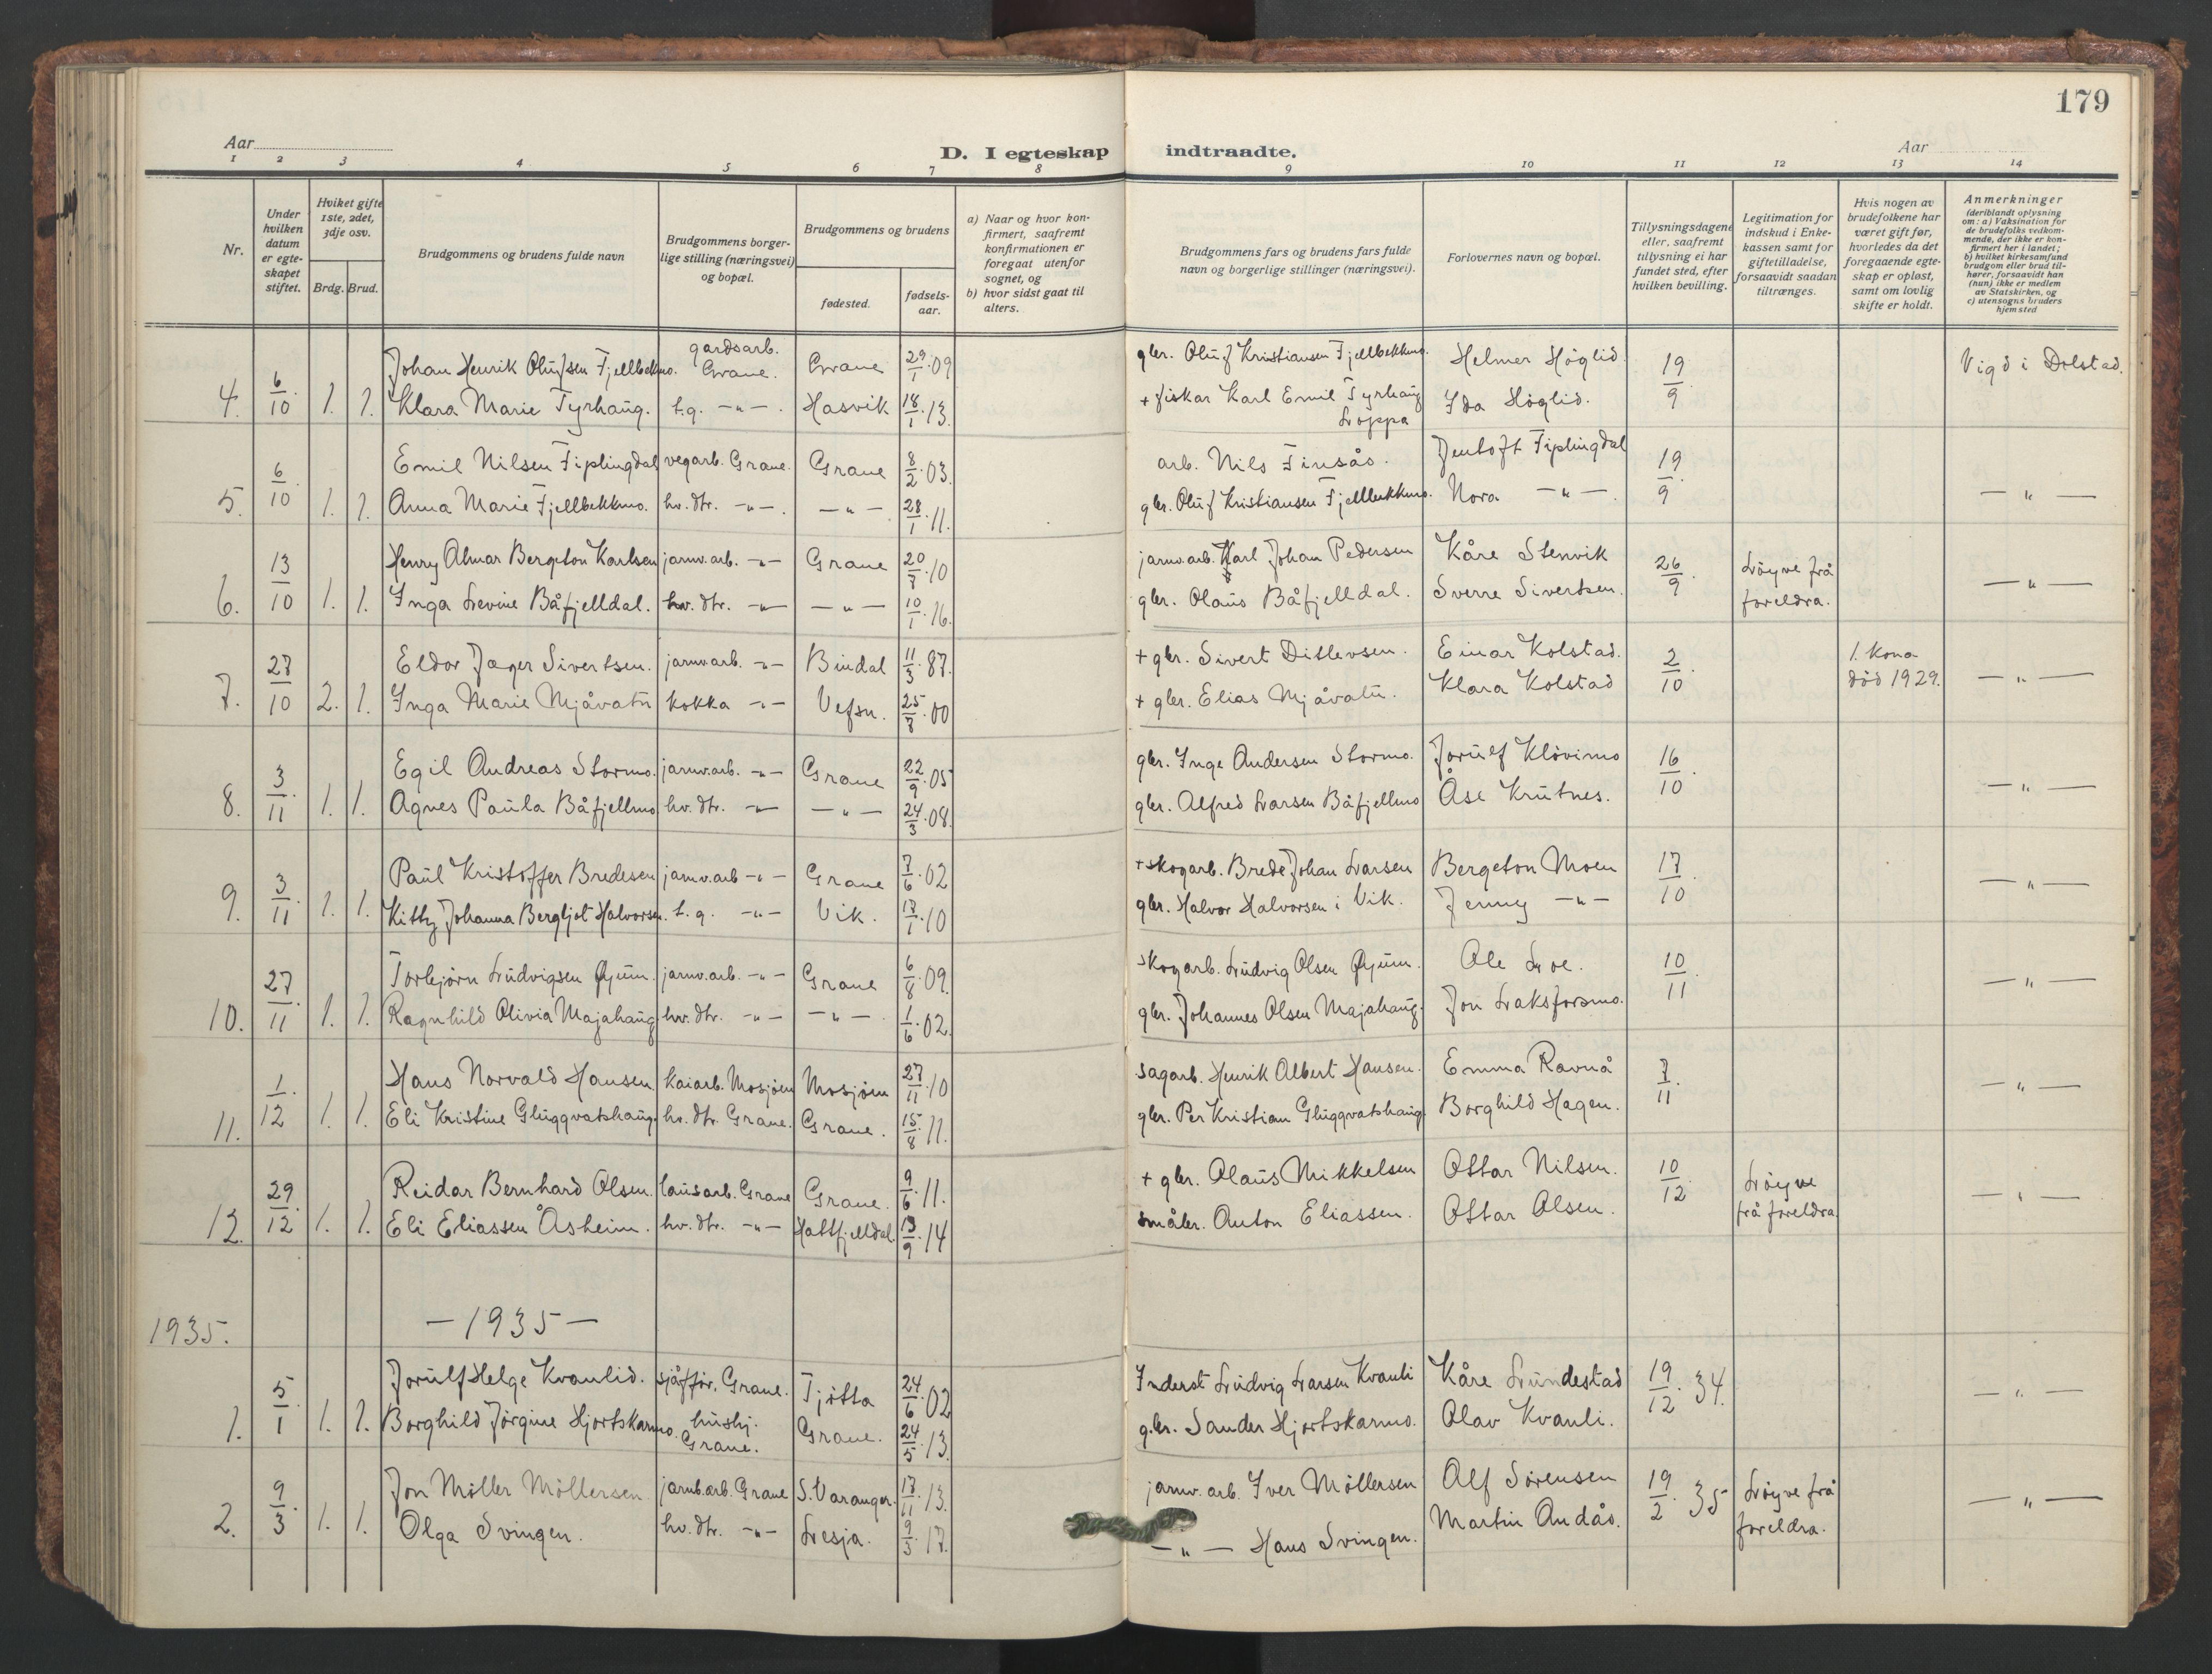 179
Aar
D. I egteskap indtraadte.
Aar
1 2 3 4 5 6 7 8 9 10 11 12 13 14
Nr.
Under hvilken datum er egteskapet stiftet.
Hviket gifte 1ste, 2det, 3dje osv.
Brdg. Brud.
Brudgommens og brudens fulde navn
Brudgommens borgerlige stilling (næringsvei) og bopæl.
Brudgommens og brudens
fødested.
fødselsaar.
a) Naar og hvor konfirmert, saafremt konfirmationen er foregaat utenfor sognet, og
b) hvor sidst gaat til alters.
Brudgommens fars og brudens fars fulde navn og borgerlige stillinger (næringsvei).
Forlovernes navn og bopæl.
Tillysningsdagene eller, saafremt tillysning ei har fundet sted, efter hvilken bevilling.
Legitimation for indskud i Enkekassen samt for giftetilladelse, forsaavidt saadan tiltrænges.
Hvis nogen av brudefolkene har været gift før, hvorledes da det foregaaende egteskap er opløst, samt om lovlig skifte er holdt.
Anmerkninger
(deriblandt oplysning om: a) Vaksination for de brudefolks vedkommende, der ikke er konfirmert her i landet; b) hvilket kirkesamfund brudgom eller brud tilhører, forsaavidt han (hun) ikke er medlem av Statskirken, og c) utensogns bruders hjemsted
Johan Henrik Olufsen Fjellbekkmo. gardsarb. Grane. Grane 29/1 09 gbr. Oluf Kristiansen Fjellbekkmo. Helmer Höglid. 19/9 Vigd i Dolstad.
4. 6/10 1. 1. Klara Marie Tyrhaug. t.g. -"-. Hasvik 18/1 13. + fiskar Karl Emil Tyrhaug Loppa Ida Höglid.
Emil Nilsen Fiplingdal vegarb. Grane. Grane 8/2 03. arb. Nils Finsås. Jentoft Fiplingdal 19/9 -"-
5. 6/10 1. 1. Anna Marie Fjellbekkmo. hv. dtr. -"-. -"- 28/1 11. gbr. Oluf Kristiansen Fjellbekkmo. Nora -"-.
Henry Almar Bergeton Karlsen jarnv.arb. -"- Grane 20/7 10 jarnv.arb. Karl Johan Pedersen Kåre Stenvik 26/9 Löyve frå foreldra. -"-
6. 13/10 1. 1. Inga Levine Båfjelldal. hv. dtr. -"- -"- 10/1 16. gbr. Olaus Båfjelldal. Sverre Sivertsen.
Eldor Jæger Sivertsen. jarnv.arb. -"- Bindal 11/3 87. + gbr. Sivert Ditlevsen. Einar Kolstad. 2/10 1. kona död 1929. -"-
7. 27/10 2. 1. Inga Marie Mjåvatn kokka -"- Vefsn. 25/7 00 + gbr. Elias Mjåvatn. Klara Kolstad
Egil Andreas Stormo. jarnv.arb. -"- Grane 22/9 05 gbr. Inge Andersen Stormo. Jorulf Klövimo 16/10 -"-
8. 3/11 1. 1. Agnes Paula Båfjellmo hv. dtr. -"- -"- 24/3 08. gbr. Alfred Larsen Båfjellmo Åse Krutnes.
Paul Kristoffer Bredesen jarnv.arb -"- Grane 7/6 02 + skogarb. Brede Johan Larsen Bergeton Moen 17/10 -"-
9. 3/11 1. 1. Kitty Johanna Bergljot Halvorsen. t.g. -"- Vik. 17/1 10 gbr. Halvor Halvorsen i Vik. Jenny -"-
Torbjörn Ludvigsen Öyum. jarnv.arb. -"- Grane 6/8 09. skogarb. Ludvig Olsen Öyum. Ole Loe. 10/11 -"-
10. 27/11 1. 1. Ragnhild Olivia Majahaug hv. dtr. -"- -"-. 1/6 02. gbr. Johannes Olsen Majahaug. Jon Laksforsmo.
Hans Norvald Hansen. kaiarb. Mosjöen Mosjöen 27/11 10 sagarb. Henrik Albert Hansen. Emma Ravnå 7/11 -"-
11. 1/12 1. 1. Eli Kristine Gluggvatshaug. hv. dtr. Grane. Grane. 15/8 11. gbr. Per Kristian Gluggvatshaug. Borghild Hagen.
Reidar Bernhard Olsen. lausarb. Grane Grane. 9/6 11. + gbr. Olaus Mikkelsen Ottar Nilsen. 10/12 Löyve frå foreldra. -"-
12. 29/12 1. 1. Eli Eliassen Åsheim. hv. dtr. -"- Hattfjelldal. 13/9 14 småbr. Anton Eliassen. Ottar Olsen.
1935. -1935-
Jorulf Helge Kvanlid. sjåffør, Grane. Tjötta 24/6 02 Inderst Ludvig Larsen Kvanli Kåre Lundestad 19/12 34. -"-
1. 5/1 1. 1. Borghild Jörgine Hjortskarmo. hushj. Grane. Grane. 24/5 13. gbr. Sander Hjortskarmo. Olav Kvanli.
Jon Möller Möllersen jarnb.arb. Grane S. Varanger. 17/11 13. jarnv. arb. Iver Möllersen Alf Sörensen 19/2 35 Löyve frå foreldra. -"-
2. 9/3 1. 1. Olga Svingen. hv. dtr. -"- Lesja. 9/5 17. -"- Hans Svingen. Martin Andås.